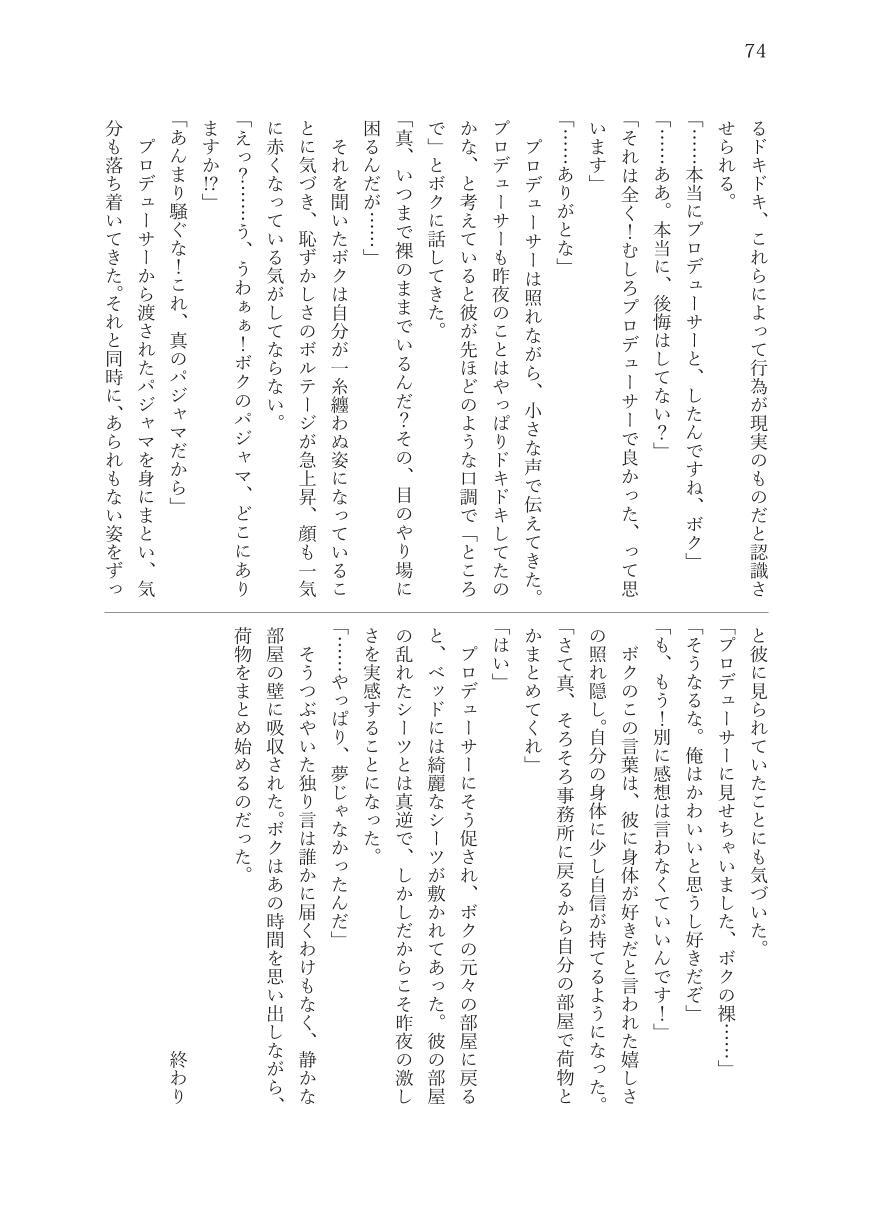 74
るドキドキ、これらによって行為が現実のものだと認識さ
せられる。
「……本当にプロデューサーと、したんですね、ボク」
「……ああ。本当に、後悔はしてない？」
「それは全く！むしろプロデューサーで良かった、って思
います」
「……ありがとな」
　プロデューサーは照れながら、小さな声で伝えてきた。
プロデューサーも昨夜のことはやっぱりドキドキしてたの
かな、と考えていると彼が先ほどのような口調で「ところ
で」とボクに話してきた。
「真、いつまで裸のままでいるんだ？その、目のやり場に
困るんだが……」
　それを聞いたボクは自分が一糸纏わぬ姿になっているこ
とに気づき、恥ずかしさのボルテージが急上昇、顔も一気
に赤くなっている気がしてならない。
「えっ？……う、うわぁぁ！ボクのパジャマ、どこにあり
ますか!?」
「あんまり騒ぐな！これ、真のパジャマだから」
　プロデューサーから渡されたパジャマを身にまとい、気
分も落ち着いてきた。それと同時に、あられもない姿をずっ
と彼に見られていたことにも気づいた。
「プロデューサーに見せちゃいました、ボクの裸……」
「そうなるな。俺はかわいいと思うし好きだぞ」
「も、もう！別に感想は言わなくていいんです！」
　ボクのこの言葉は、彼に身体が好きだと言われた嬉しさ
の照れ隠し。自分の身体に少し自信が持てるようになった。
「さて真、そろそろ事務所に戻るから自分の部屋で荷物と
かまとめてくれ」
「はい」
　プロデューサーにそう促され、ボクの元々の部屋に戻る
と、ベッドには綺麗なシーツが敷かれてあった。彼の部屋
の乱れたシーツとは真逆で、しかしだからこそ昨夜の激し
さを実感することになった。
「……やっぱり、夢じゃなかったんだ」
　そうつぶやいた独り言は誰かに届くわけもなく、静かな
部屋の壁に吸収された。ボクはあの時間を思い出しながら、
荷物をまとめ始めるのだった。
終わり